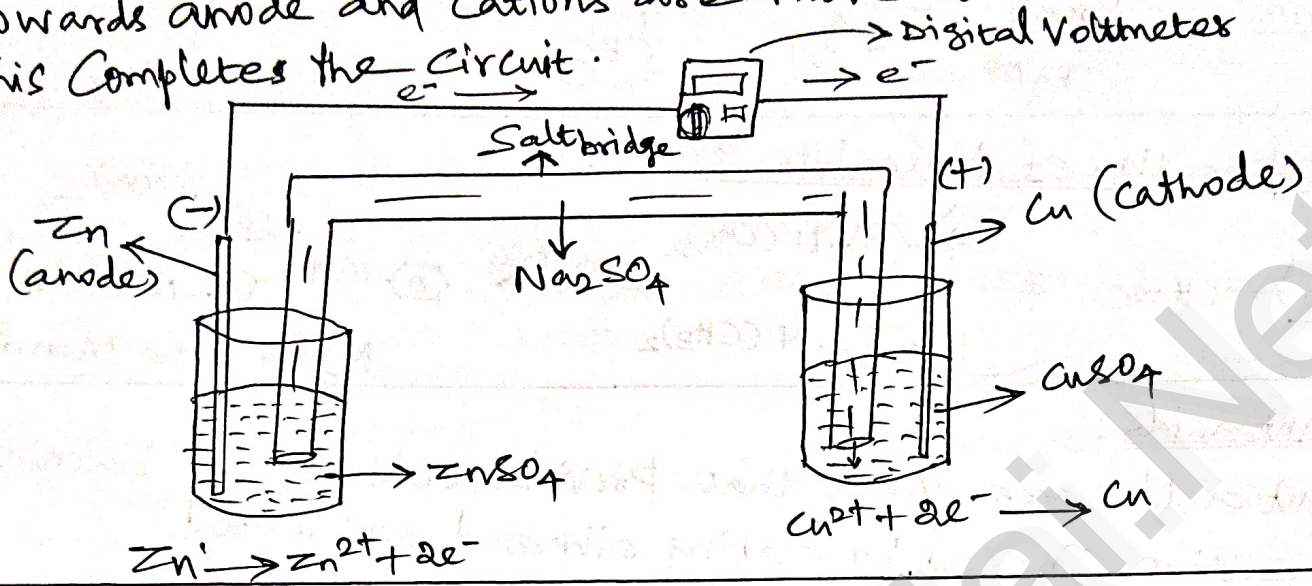 owards anode and Cations
his Completes the Circuit.
Digital Voltmeter
e⁻ →
→ e⁻
Salt bridge
(-)
(+)
Zn
(anode)
Cu (Cathode)
Na₂SO₄
CuSO₄
ZnSO₄
Cu²⁺ + 2e⁻ → Cu
Zn → Zn²⁺ + 2e⁻